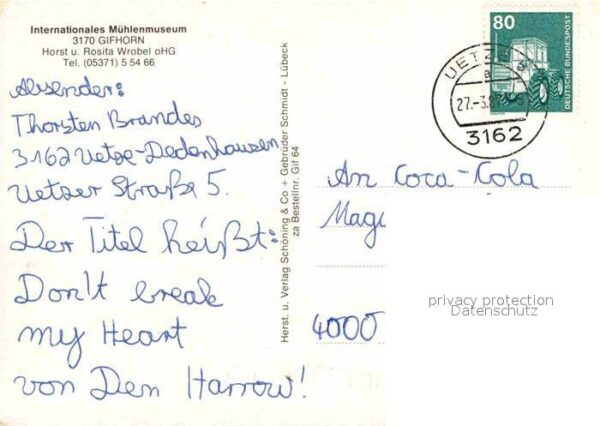 Internationales Mühlenmuseum
3170 GIFHORN
Horst u. Rosita Wrobel oHG
Tel. (05371) 5 54 66
Absender:
Thorsten Brandes
3162 Uetze-Dedenhausen
Uetzer Straße 5.
Der Titel heißt:
Don't break
my Heart
von Den Harrow!
Herst. u. Verlag Schöning & Co + Gebrüder Schmidt - Lübeck
za Bestellnr. Gif 64
80
DEUTSCHE BUNDESPOST
UETZE
a
27.-3.
3162
An Coca-Cola
4000
privacy protection
Datenschutz